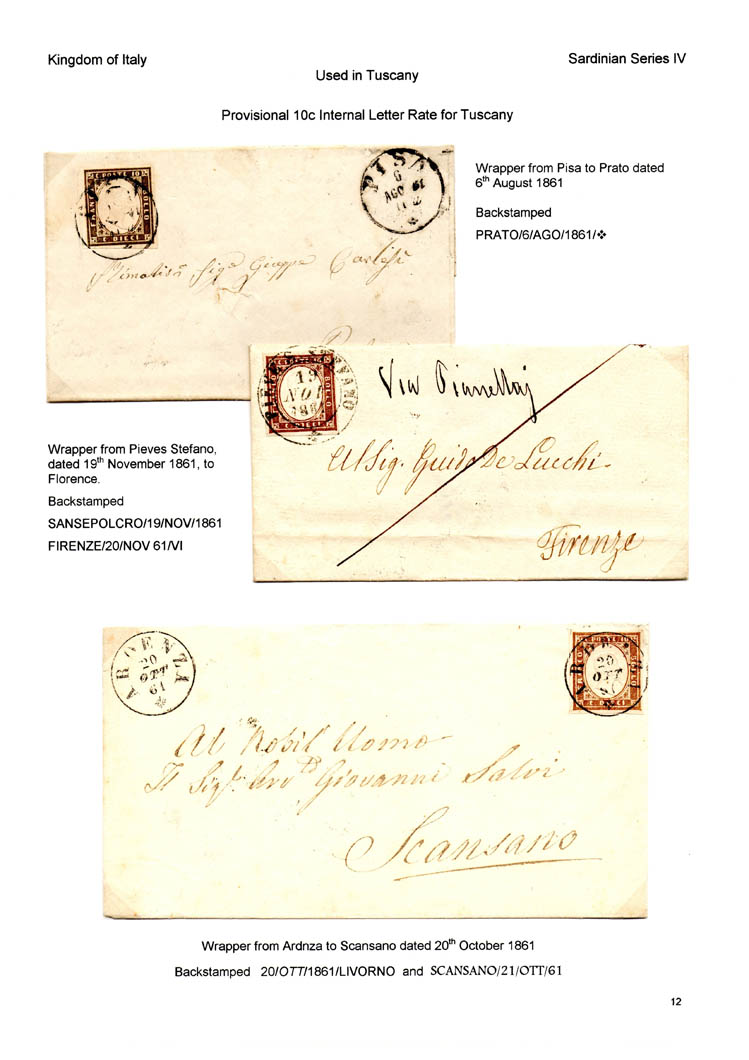 Kingdom of Italy
Sardinian Series IV
Used in Tuscany
Provisional 10c Internal Letter Rate for Tuscany
FRANCO
C. POSTE 10
BOLLO
C. DIECI
PISA
6
AGO 61
Wrapper from Pisa to Prato dated
6th August 1861
Backstamped
PRATO/6/AGO/1861/❖
Sigr Giuseppe
19
NOV
BOLLO
C. DIECI
Via
Al Sig. Guido De Lucchi.
Firenze
Wrapper from Pieves Stefano,
dated 19th November 1861, to
Florence.
Backstamped
SANSEPOLCRO/19/NOV/1861
FIRENZE/20/NOV 61/VI
ARDENZA
20
OTT
61
20
OTT
61
Al Nobil Uomo
Il Giovanni Salvi
Scansano
Wrapper from Ardnza to Scansano dated 20th October 1861
Backstamped 20/OTT/1861/LIVORNO and SCANSANO/21/OTT/61
12